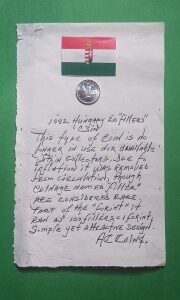 1992 HUNGARY 20 "fillers"
COIN
This type of Coin is no
longer in use nor available
with Collectors. Due to
inflation it was removed
from Circulation, though
Coinage named fillér
are considered rare.
Part of the "forint" it
ran as 100 fillers = 1 forint,
Simple yet attractive design.